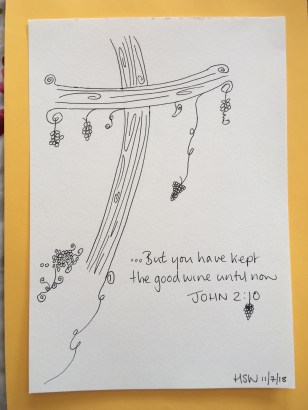 ...But you have kept
the good wine until now
JOHN 2:10
HSW 11/7/18